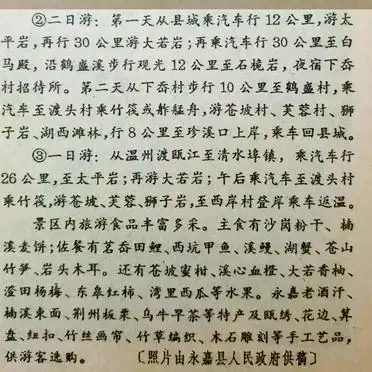 ②二日游：第一天从县城乘汽车行12公里，游太
平岩，再行30公里游大若岩；再乘汽车行30公里至白
马殿，沿鹤盛溪步行观光12公里至石桅岩，夜宿下岙
村招待所。第二天从下岙村步行10公里至鹤盛村，乘
汽车至渡头村乘竹筏或舴艋舟，游苍坡村、芙蓉村、狮
子岩、湖西滩林，行8公里至珍溪口上岸，乘车回县城。
③一日游：从温州渡瓯江至清水埠镇，乘汽车行
26公里，至太平岩；再游大若岩；午后乘汽车至渡头村
乘竹筏，游苍坡、芙蓉、狮子岩，至西岸村登岸乘车返温。
景区内旅游食品丰富多采。主食有沙岗粉干、楠
溪麦饼；佐餐有茗岙田鲤、西坑甲鱼、溪鳗、湖蟹、苍山
竹笋、岩头木耳。还有苍坡蜜柑、溪心血橙、大若香柚、
渣田杨梅、东皋红柿、湾里西瓜等水果。永嘉老酒汗、
楠溪束面、荆州板栗、乌牛早茶等特产及瓯绣、花边、算
盘、纽扣、竹丝画帘、竹草编织、木石雕刻等手工艺品，
供游客选购。〔照片由永嘉县人民政府供稿〕